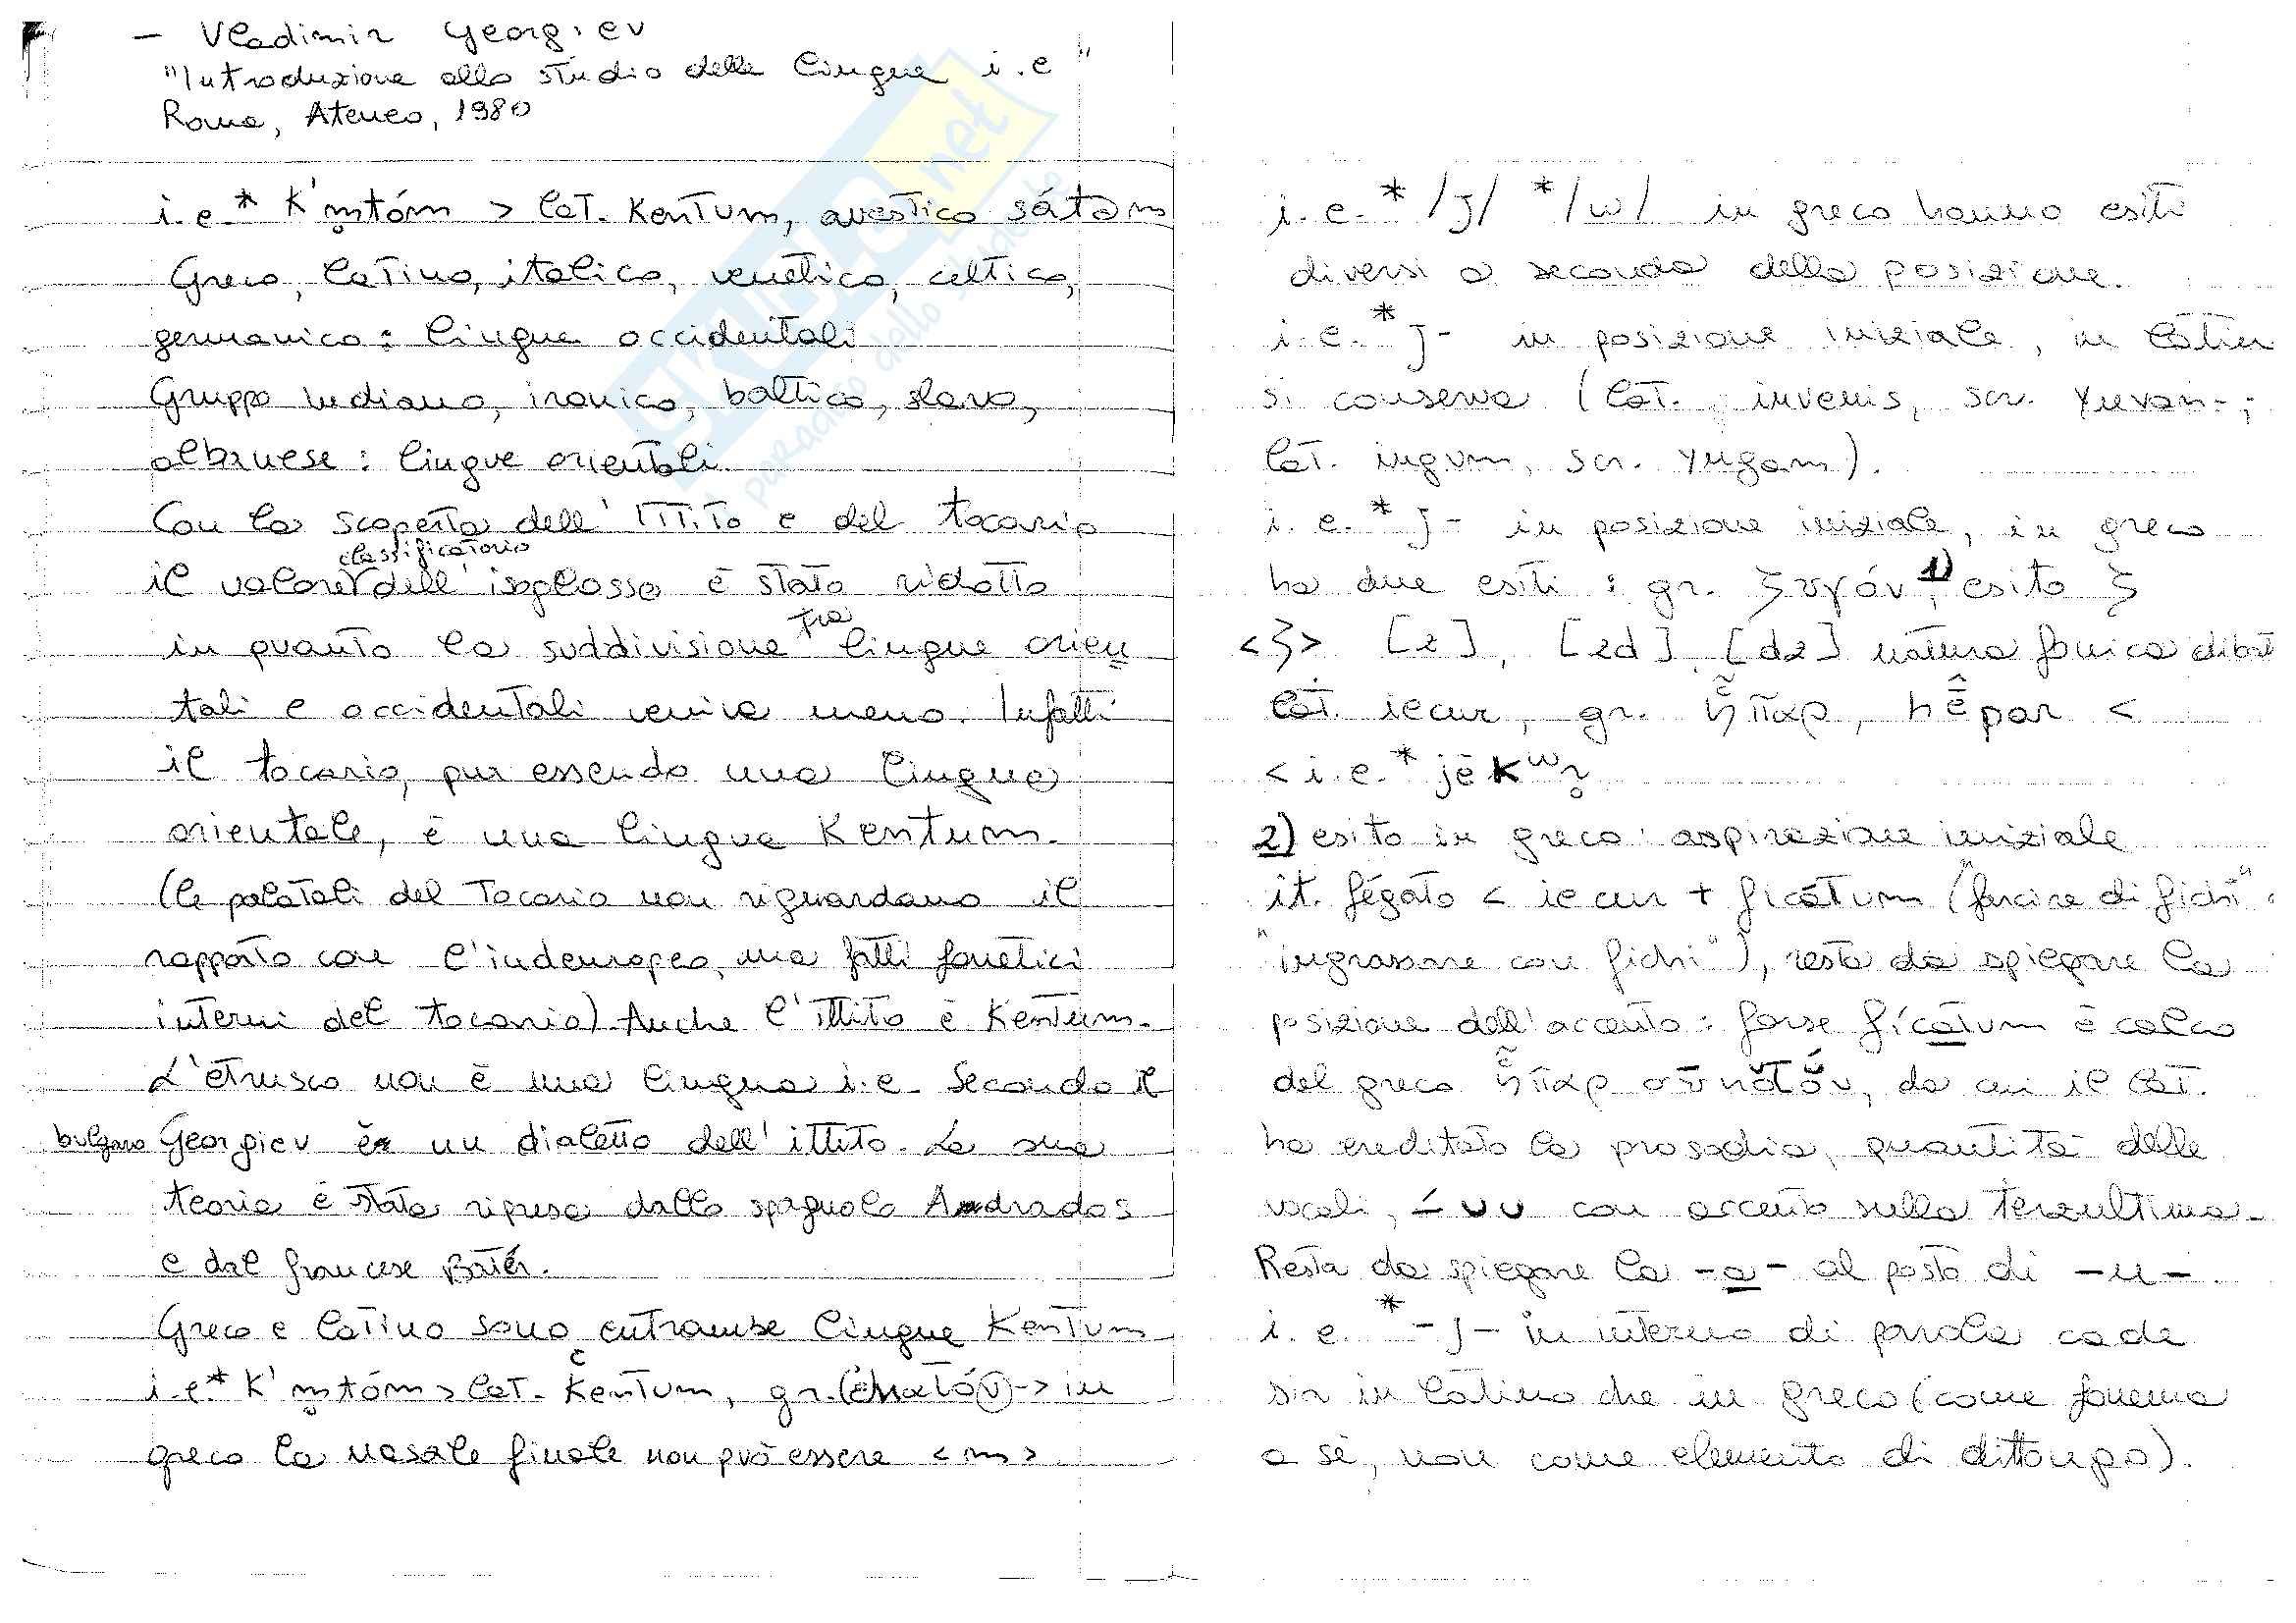 - Vladimir Georgiev
"Introduzione allo studio delle lingue i.e"
Roma, Ateneo, 1980
i.e.* K'm̥tóm > lat. Kentum, avestico sátəm
Greco, latino, italico, venetico, celtico,
germanico: lingue occidentali
Gruppo indiano, iranico, baltico, slavo,
albanese: lingue orientali.
Con la scoperta dell'ittito e del tocario
classificatorio
il valore dell'isoglossa è stato ridotto
in quanto la suddivisione tra lingue orien
tali e occidentali veniva meno. Infatti
il tocario, pur essendo una lingua
orientale, è una lingua Kentum.
(le palatali del Tocario non riguardano il
rapporto con l'indeuropeo, ma fatti fonetici
interni del tocario) Anche l'ittito è Kentum.
L'etrusco non è una lingua i.e. Secondo il
bulgaro Georgiev è un dialetto dell'ittito. La sua
teoria è stata ripresa dallo spagnolo Adrados
e dal francese
Greco e latino sono entrambe lingue Kentum
i.e* K'm̥tóm > lat. Kentum, gr. (ἑκατόν) -> in
greco la nasale finale non può essere <m>
i.e.* /j/ */w/ in greco hanno esiti
diversi a seconda della posizione.
i.e.* j- in posizione iniziale, in latin
si conserva (lat. iuvenis, scr. yuvan-;
lat. iugum, scr. yugam).
i.e.* j- in posizione iniziale, in greco
ha due esiti: gr. ζυγόν 1), esito ζ
<ζ> [z], [zd], [dz] natura fonica dibat
lat. iecur, gr. ἧπαρ, hêpar <
< i.e.* jēkʷr̥
2) esito in greco: aspirazione iniziale
it. fégato < iecur + ficátum (farcire di fichi"
"ingrassare con fichi"), resta da spiegare la
posizione dell'accento: forse fícatum è calco
del greco ἧπαρ da cui il lat.
ha ereditato la prosodia, quantità delle
vocali, –́ ∪ ∪ con accento sulla terzultima.
Resta da spiegare la -a- al posto di -u-.
i.e.* -j- in interno di parola cade
sia in latino che in greco (come fonema
a sé, non come elemento di dittongo).